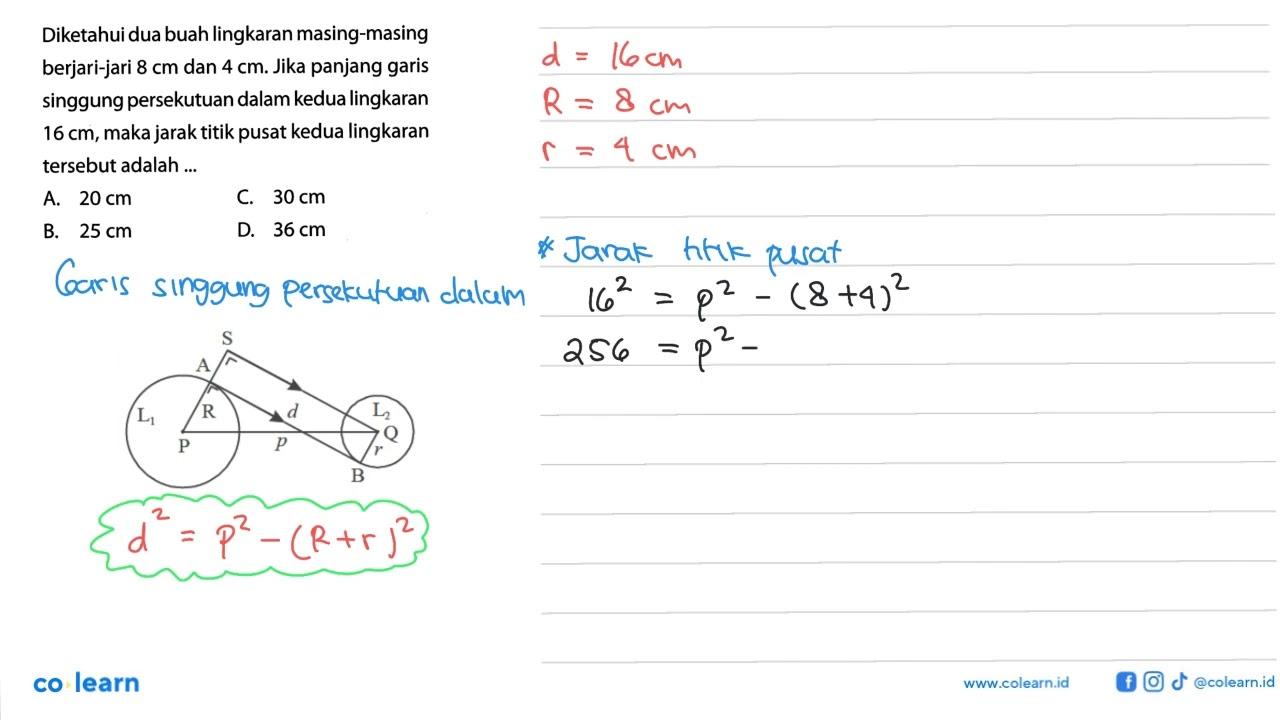 Diketahui dua buah lingkaran masing-masing
berjari-jari 8 cm dan 4 cm. Jika panjang garis
singgung persekutuan dalam kedua lingkaran
16 cm, maka jarak titik pusat kedua lingkaran
tersebut adalah ...
A. 20 cm C. 30 cm
B. 25 cm D. 36 cm
Garis singgung persekutuan dalam
S
A
L₁ R d L₂
P p Q
r
B
d² = p² - (R+r)²
d = 16 cm
R = 8 cm
r = 4 cm
* Jarak titik pusat
16² = p² - (8+4)²
256 = p² -
co learn
www.colearn.id @colearn.id